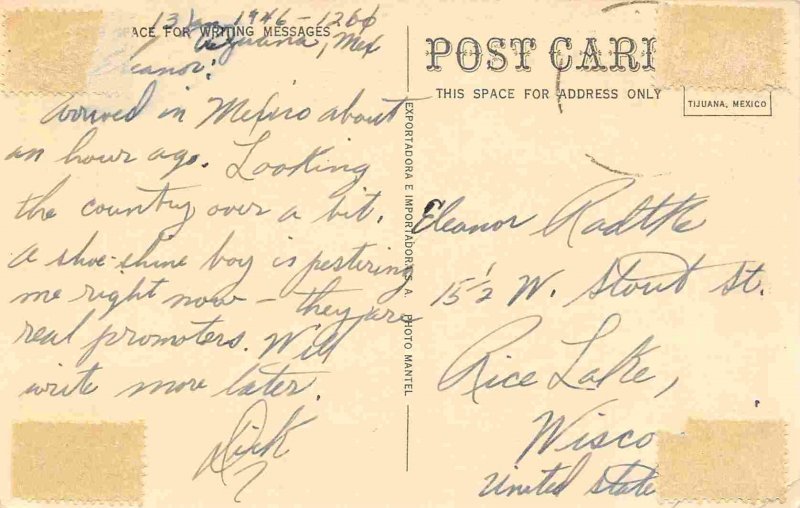 13 Jan 1946 - 1200
PACE FOR WRITING MESSAGES
Tijuana, Mex
Eleanor:
Arrived in Mexico about
an hour ago. Looking
the country over a bit.
A shoe-shine boy is pestering
me right now – they are
real promoters. Will
write more later.
Dick
EXPORTADORA E IMPORTADORA S. A. PHOTO MANTEL
POST CAR
THIS SPACE FOR ADDRESS ONLY
TIJUANA, MEXICO
Eleanor Radtke
15½ W. Stout St.
Rice Lake,
Wisco
United State